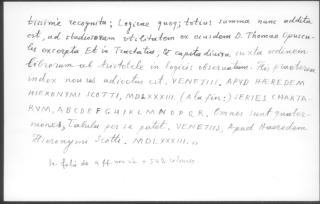 tissimè recognita; Logicae quoq; totius summa nunc addita
est, ad studiosorum utilitatem ex eiusdem D. Thomae Opuscu-
lis excerpta Et in Tractatus, & capita divisa, iuxta ordinem
librorum ab Aristotele in logicis observatum. His praeterea
index novus adiectus est. VENETIIS, APVD HAEREDEM
HIERONYMI SCOTTI, MDLXXXIII. (a la fin:) SERIES CHARTA-
RVM, A B C D E F G H I K L M N O P Q R. Omnes sunt quater-
niones, Tabula per se patet. VENETIIS, Apud Haeredem
Hieronymi Scotti. MDLXXXIII.»
In folio de 4 ff